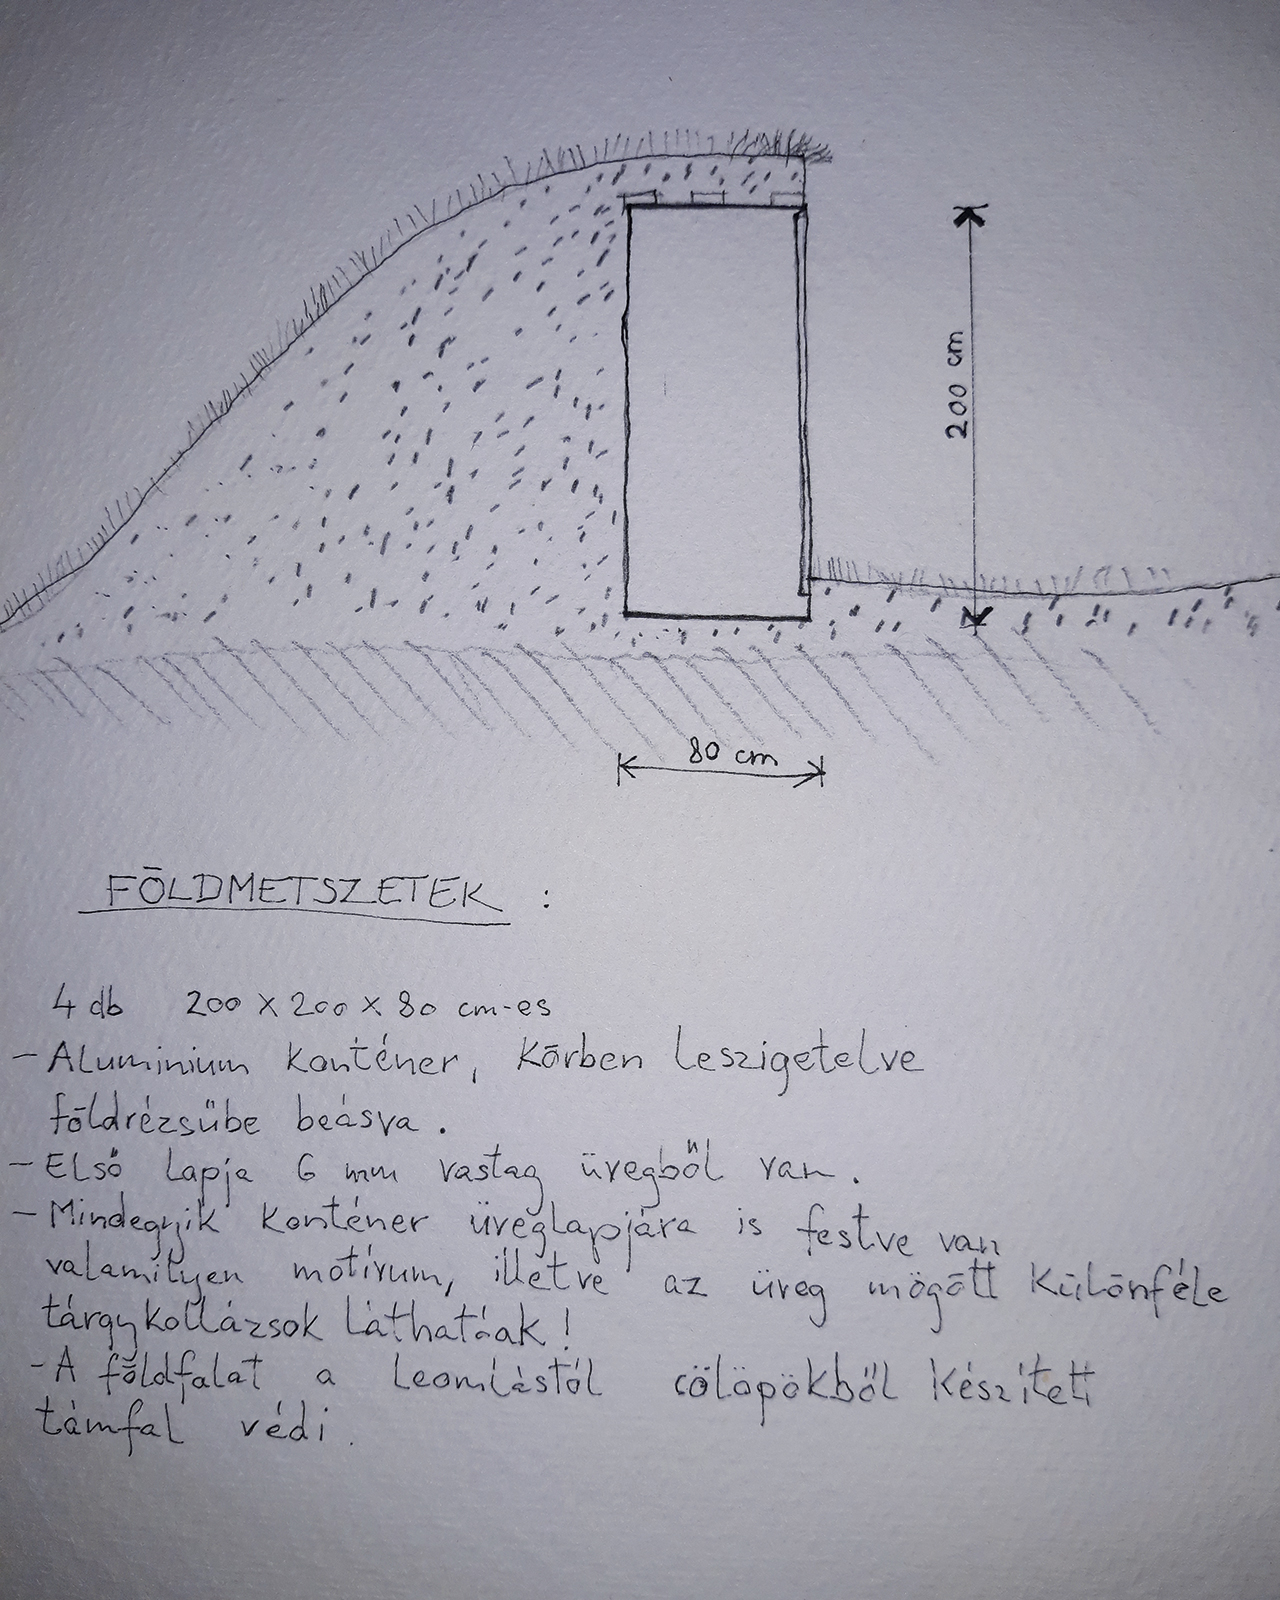 200 cm
80 cm
FÖLDMETSZETEK :
4 db 200 x 200 x 80 cm-es
- Aluminium konténer, körben leszigetelve
földrézsűbe beásva.
- Első lapja 6 mm vastag üvegből van.
- Mindegyik konténer üveglapjára is festve van
valamilyen motívum, illetve az üveg mögött különféle
tárgykollázsok láthatóak!
- A földfalat a leomlástól cölöpökből készített
támfal védi.